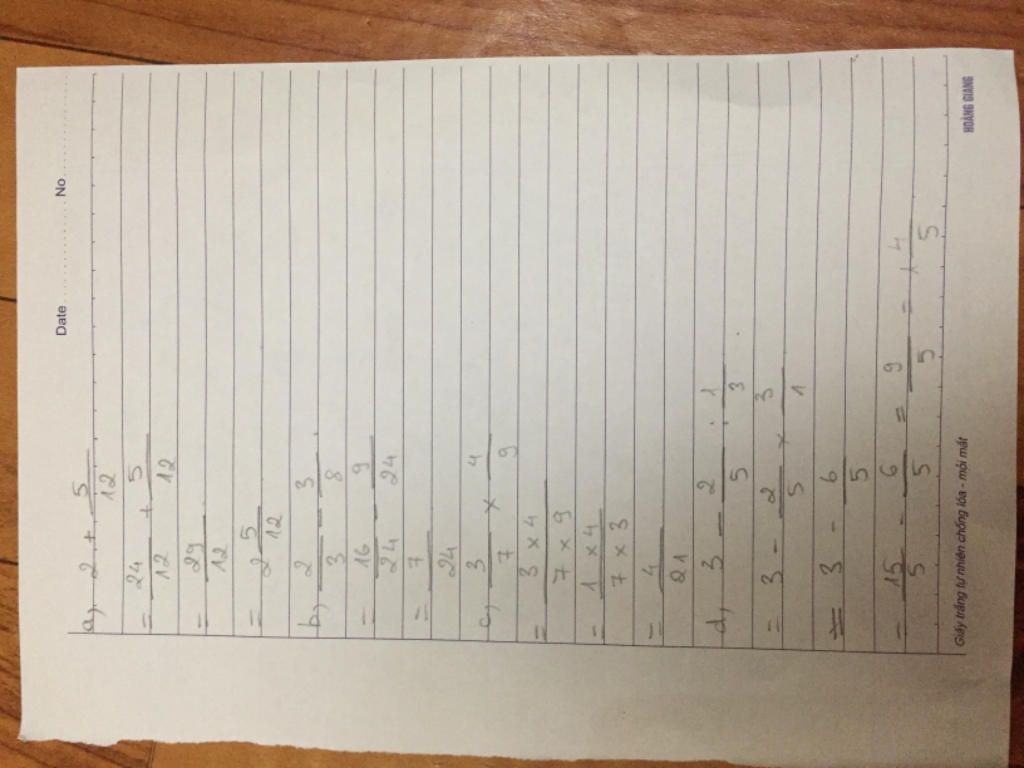 Date ............ No .........
a, 2 + 5/12
= 24/12 + 5/12
= 29/12
= 2 5/12
b, 2/3 - 3/8
= 16/24 - 9/24
= 7/24
c, 3/7 × 4/9
= 3 × 4/7 × 9
= 1 × 4/7 × 3
= 4/21
d, 3 - 2/5 : 1/3
= 3 - 2/5 × 3/1
= 3 - 6/5
= 15/5 - 6/5 = 9/5 = 1 4/5
Giấy trắng tự nhiên chống lóa - mỏi mắt
HOÀNG GIANG